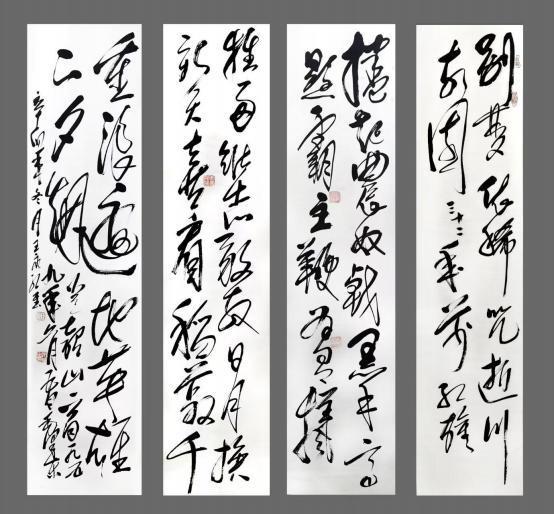 别夢依稀咒逝川
故園三十二年前红旗
捲起農奴戟黑手高
懸霸主鞭为有犧
牲多壮志敢教日月换
新天喜看稻菽千
重浪遍地英雄
下夕烟
韶山一九五
九年六月